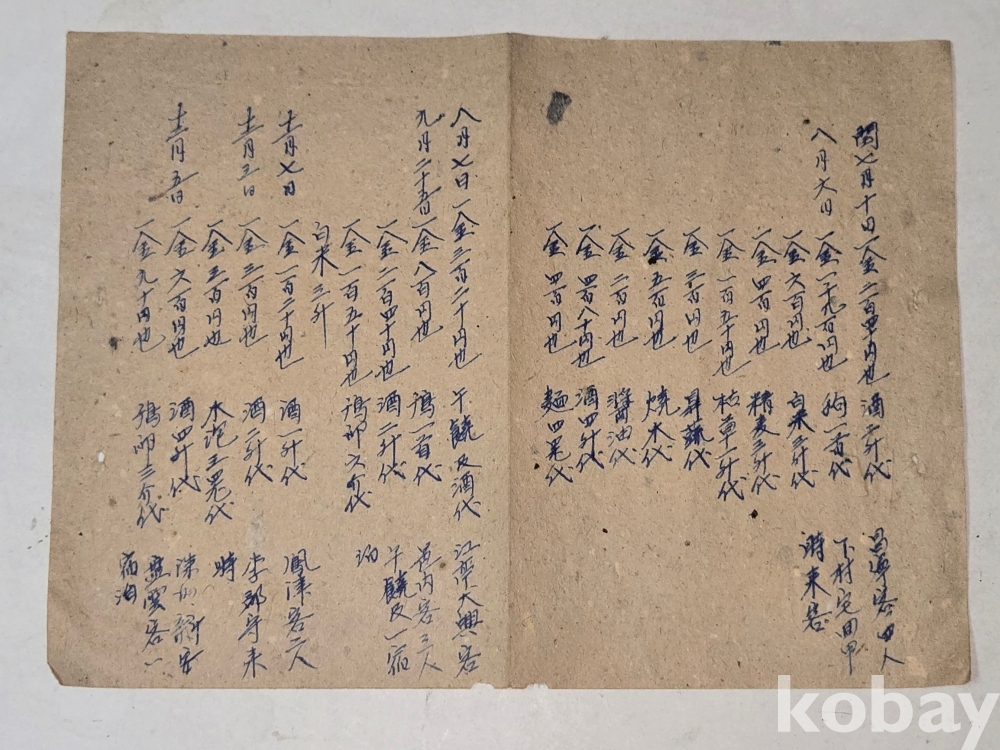 閏七月十日 一金二百四十円也 酒二升代 客四人
八月六日 一金一千九百円也 狗一首代 下村宅回甲
一金六百円也 白米三升代 時来客
一金四百円也 精麦三升代
一金一百五十円也 枯草一升代
一金三百円也 代
一金五百円也 焼木代
一金二百円也 醬油代
一金四百八十円也 酒四升代
一金四百円也 麺四器代
八月七日 一金三百二十円也 午饒及酒代 江亭大興客
九月二十五日 一金八百円也 鶏一首代 邑内客三人
一金二百四十円也 酒二升代 午饒及一宿
一金一百五十円也 鶏卵六介代 泊
白米三升
十一月七日 一金一百二十円也 酒一升代 鳳津客二人
十二月三日 一金三百円也 酒二升代 李郡守来
一金三百円也 水泡五器代 時
十二月五日 一金六百円也 酒四升代 客
一金九十円也 鶏卵三介代 雲客
宿泊
kobay